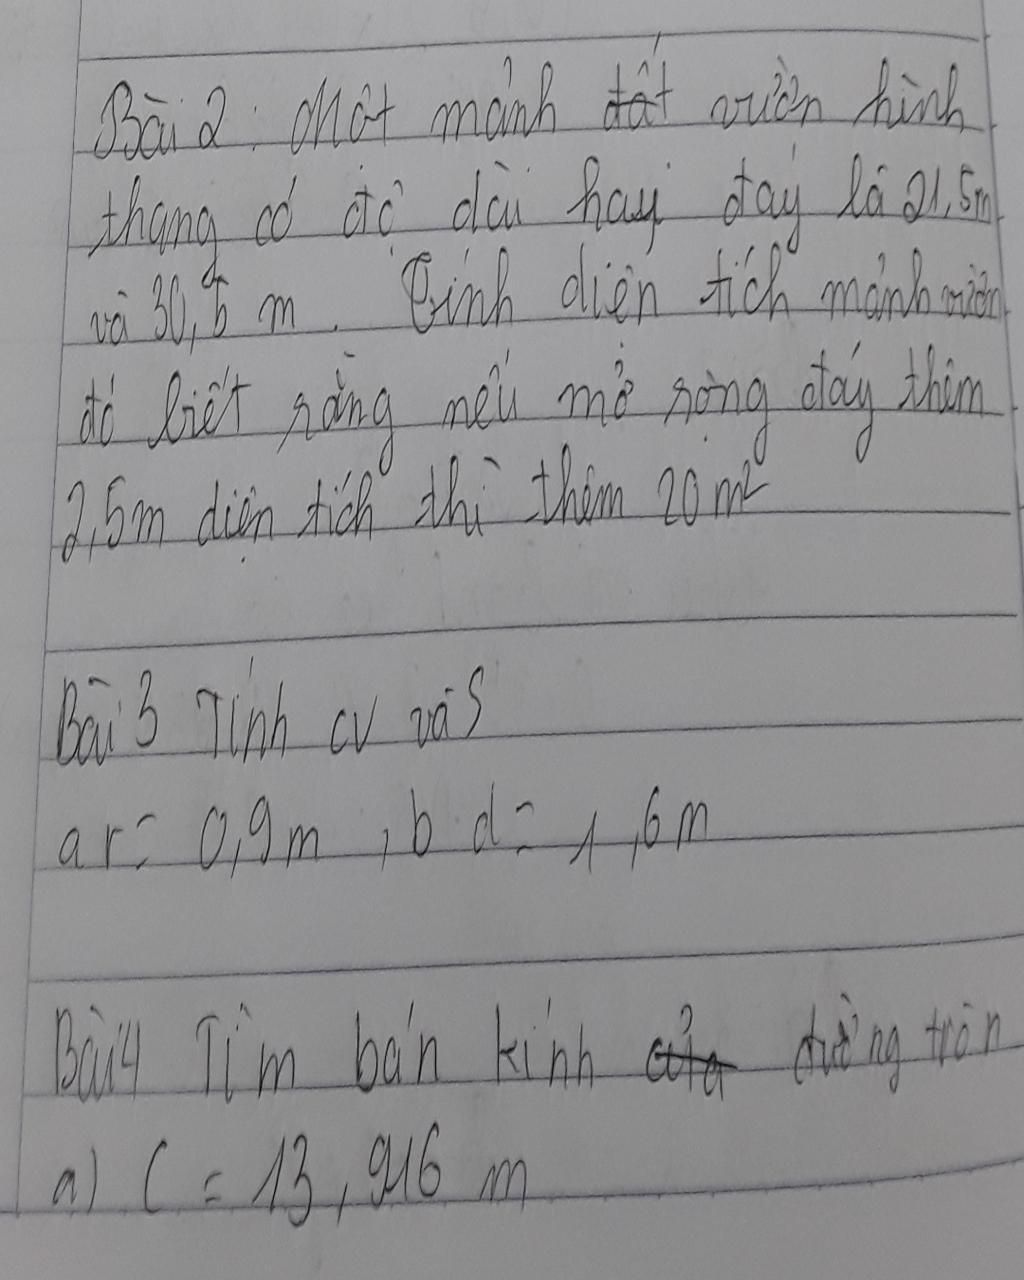 Bài 2: Một mảnh đất vườn hình
thang có độ dài hay đáy là 21,5m
và 30,5 m. Tính diện tích mảnh vườn
đó biết rằng nếu mở rộng đáy thêm
2,5m diện tích thì thêm 20 m²
Bài 3 Tính CV và S
a r = 0,9m, b d = 1,6m
Bài 4 Tìm bán kính của đường tròn
a) C = 13,916 m